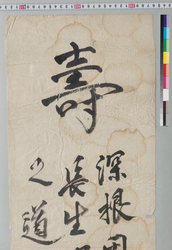 壽
深根固
長生
之道